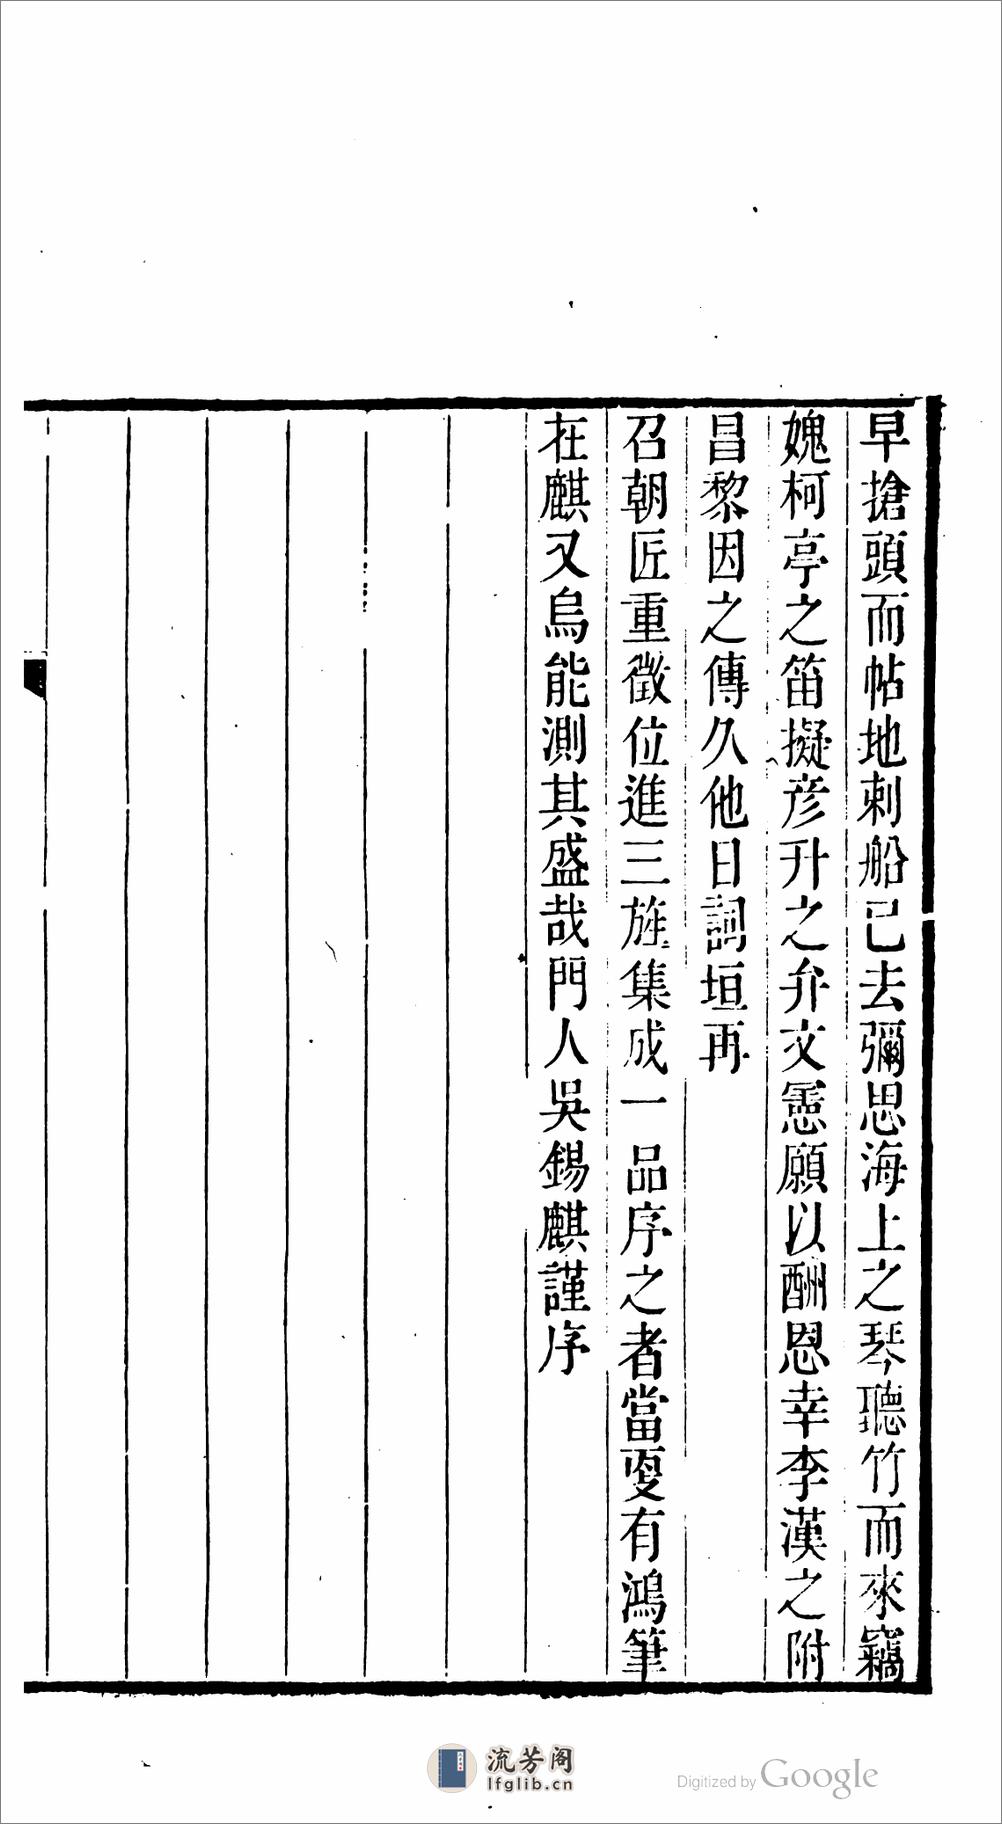 早搶頭而帖地刺船已去彌思海上之琴聽竹而來竊
媿柯亭之笛擬彦升之弁文慁願以酬恩幸李漢之附
昌黎因之傳久他日詞垣再
召朝匠重徵位進三旌集成一品序之者當更有鴻筆
在麒又烏能測其盛哉門人吳錫麒謹序
流芳阁
lfglib.cn
Digitized by Google